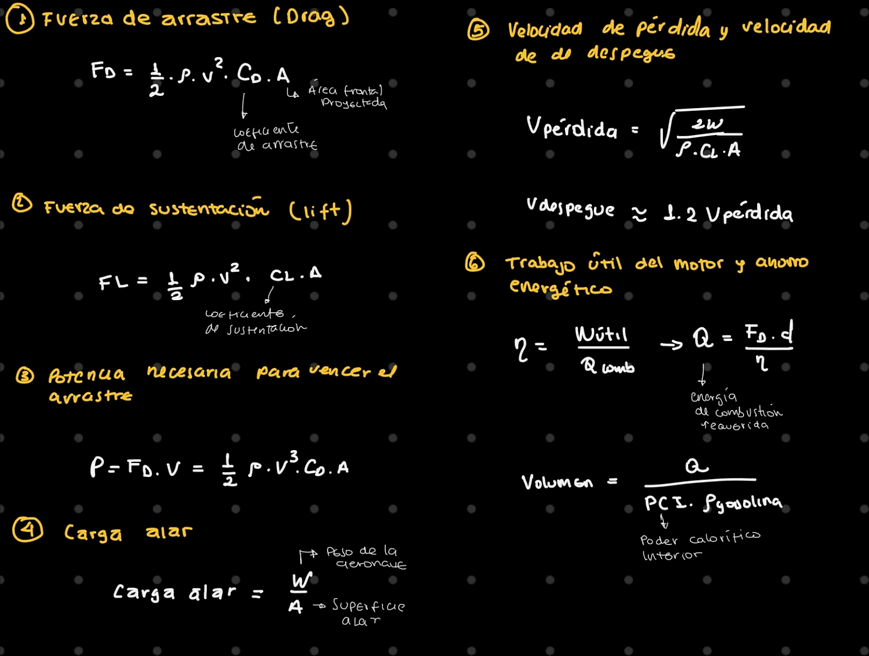 ① Fuerza de arrastre (Drag)
F_D = 1/2 · ρ · v² · C_D · A
↳ Área frontal proyectada
↓ coeficiente de arrastre
② Fuerza de sustentación (lift)
FL = 1/2 ρ · v² · CL · A
coeficiente de sustentación
③ Potencia necesaria para vencer el
arrastre
P = F_D · V = 1/2 ρ · v³ · C_D · A
④ Carga alar
Carga alar = W/A
↱ Peso de la aeronave
→ Superficie alar
⑤ Velocidad de pérdida y velocidad
de de despegue
Vpérdida = √(2W / ρ · CL · A)
Vdespegue ≈ 1.2 Vpérdida
⑥ Trabajo útil del motor y ahorro
energético
η = Wútil / Q comb → Q = F_D · d / η
↓
energía
de combustión
requerida
Volumen = Q / PCI · ρgasolina
↓
Poder calorífico
inferior